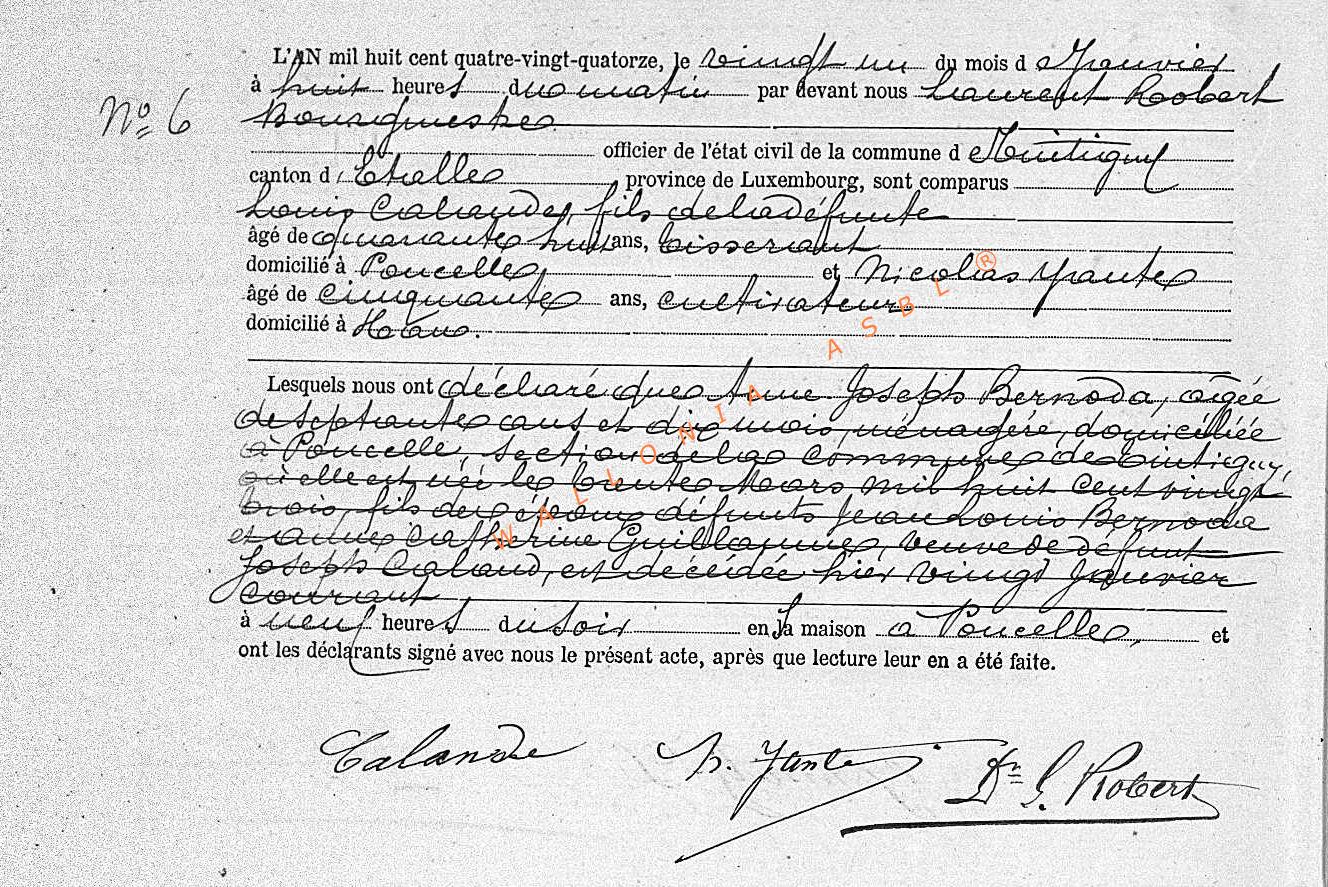 L'AN mil huit cent quatre-vingt-quatorze, le vingt un du mois d Janvier
N° 6
à huit heures du matin par devant nous Laurent Robert
Bourgmestre
officier de l'état civil de la commune d Tintigny
canton d'Etalle province de Luxembourg, sont comparus
Louis Calande, fils de la défunte
âgé de quarante huit ans, tisserant
domicilié à Poncelle, et Nicolas Yante
âgé de cinquante ans, cultivateur
domicilié à Han.
Lesquels nous ont déclaré que Anne Joseph Bernoda, âgée
de septante ans et dix mois, ménagére, domiciliée
à Poncelle, section de la commune de Tintigny,
où elle est née le trente Mars mil huit cent vingt
trois, fils des époux défunts Jean Louis Bernoda
et Catherine Guillaume, veuve de défunt
Joseph Caland, est décédée hier vingt Janvier
courant
à neuf heures du soir en la maison à Poncelle, et
ont les déclarants signé avec nous le présent acte, après que lecture leur en a été faite.
Calande N. Yante Dr L. Robert
WALLONIA ASBL ®